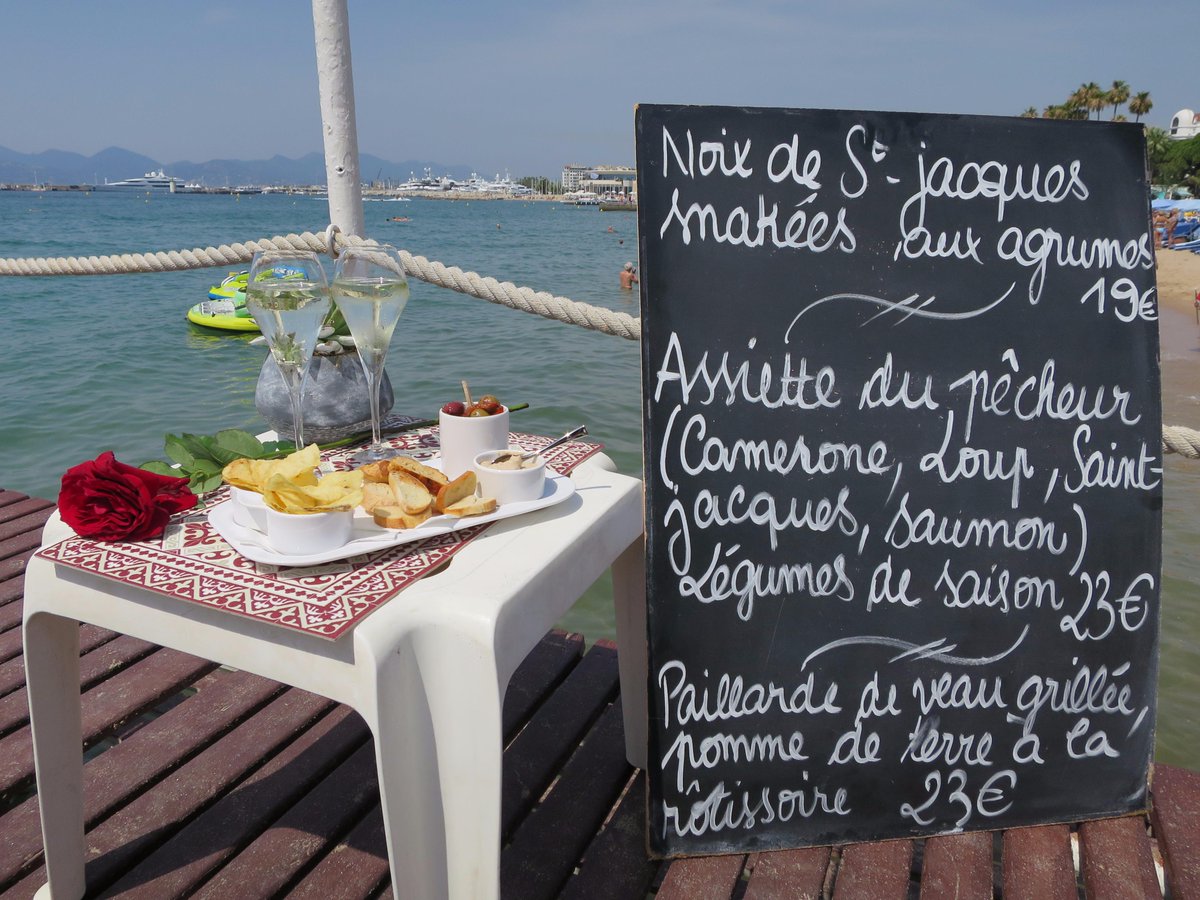 Noix de St-jacques
snakées, aux agrumes
19€
Assiette du pêcheur
(Camerone, Loup, Saint-
jacques, saumon)
Légumes de saison 23€
Paillarde de veau grillée,
pomme de terre à la
rôtissoire 23€